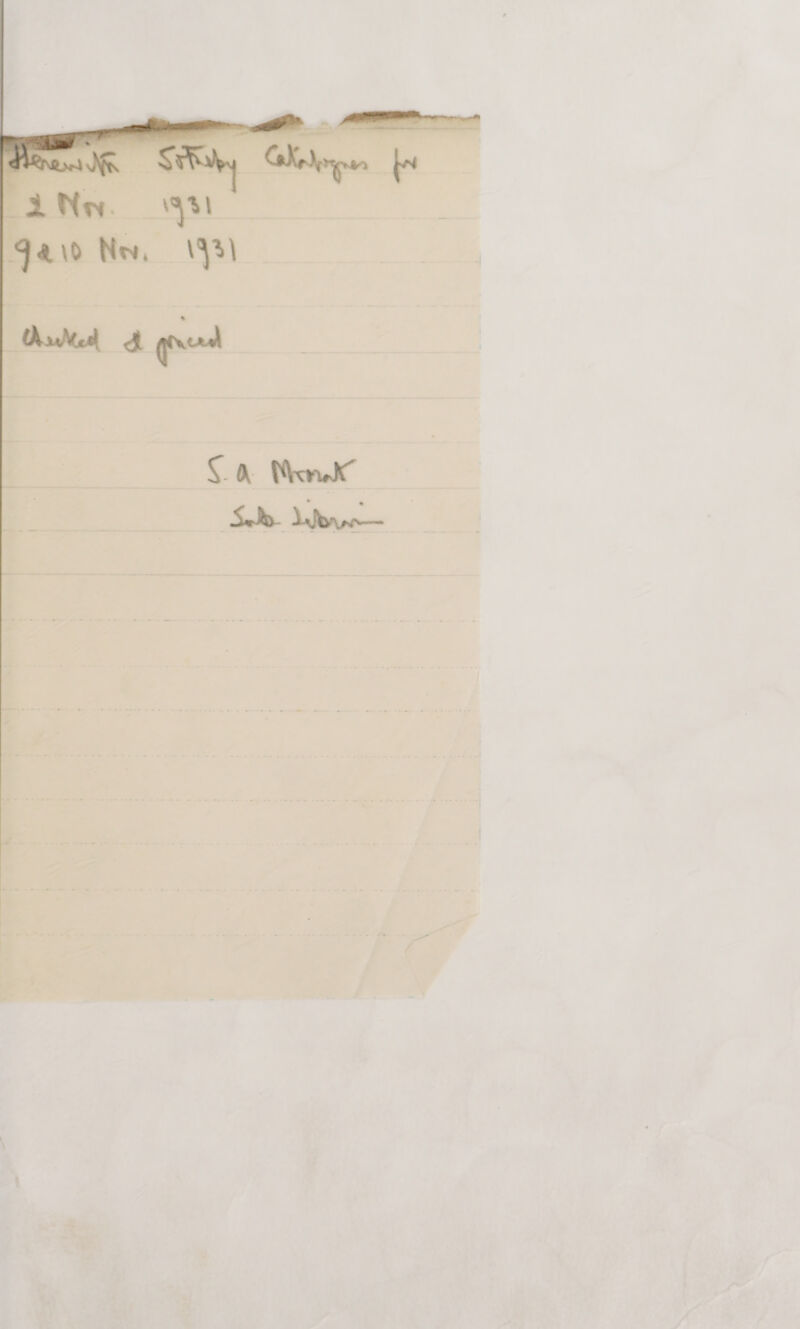 Herewith Sotheby Catalogues for
2 Nov. 1931
9 & 10 Nov. 1931
Checked & priced
S. A
Sub